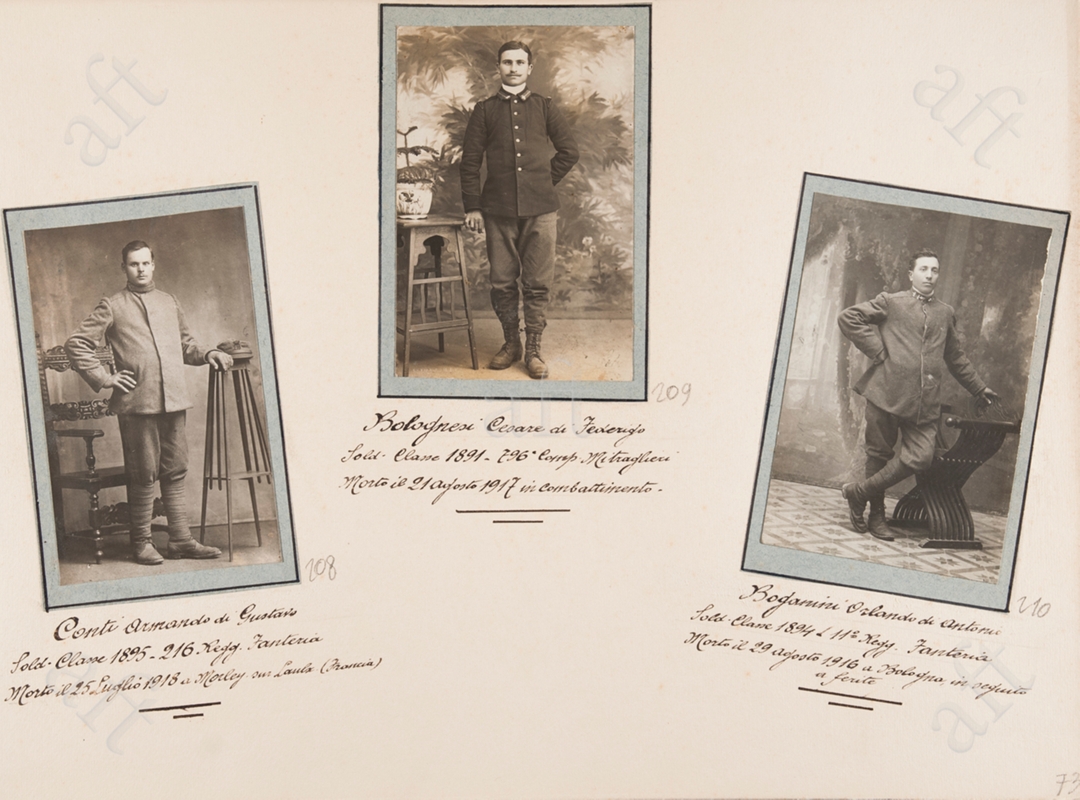 208
Conti Armando di Gustavo
Sold. Classe 1895 - 216 Regg. Fanteria
Morto il 25 Luglio 1918 a Morley sur Laula (Francia)
209
Bolognesi Cesare di Federigo
Sold. Classe 1891 - 796ª Comp. Mitraglieri
Morto il 21 agosto 1917 in combattimento -
210
Boganini Orlando di Antonio
Sold. Classe 1894 11º Regg. Fanteria
Morto il 29 agosto 1916 a Bologna in seguito
a ferite
73
aft
aft
aft
aft
aft